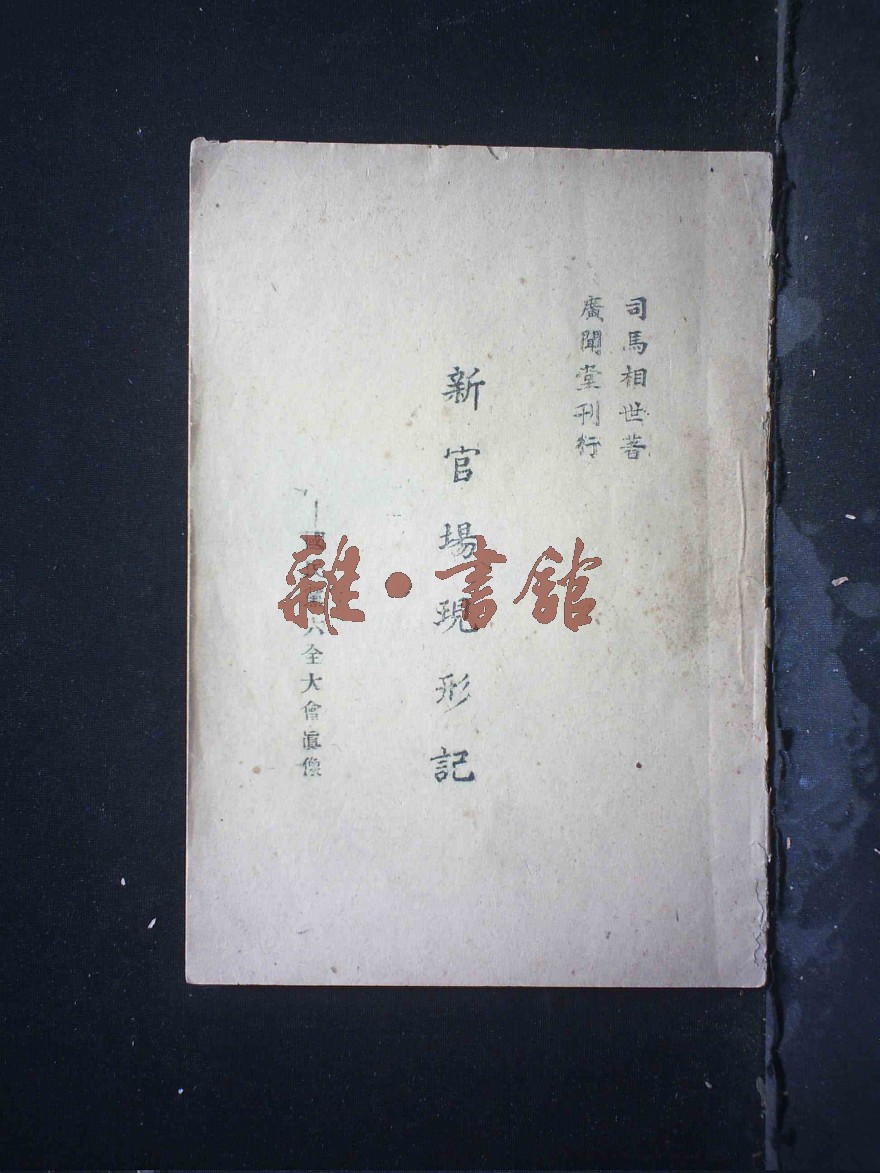 司馬相世著
廣聞堂刊行
新官場現形記
—國民黨六全大會眞像
雜·書館